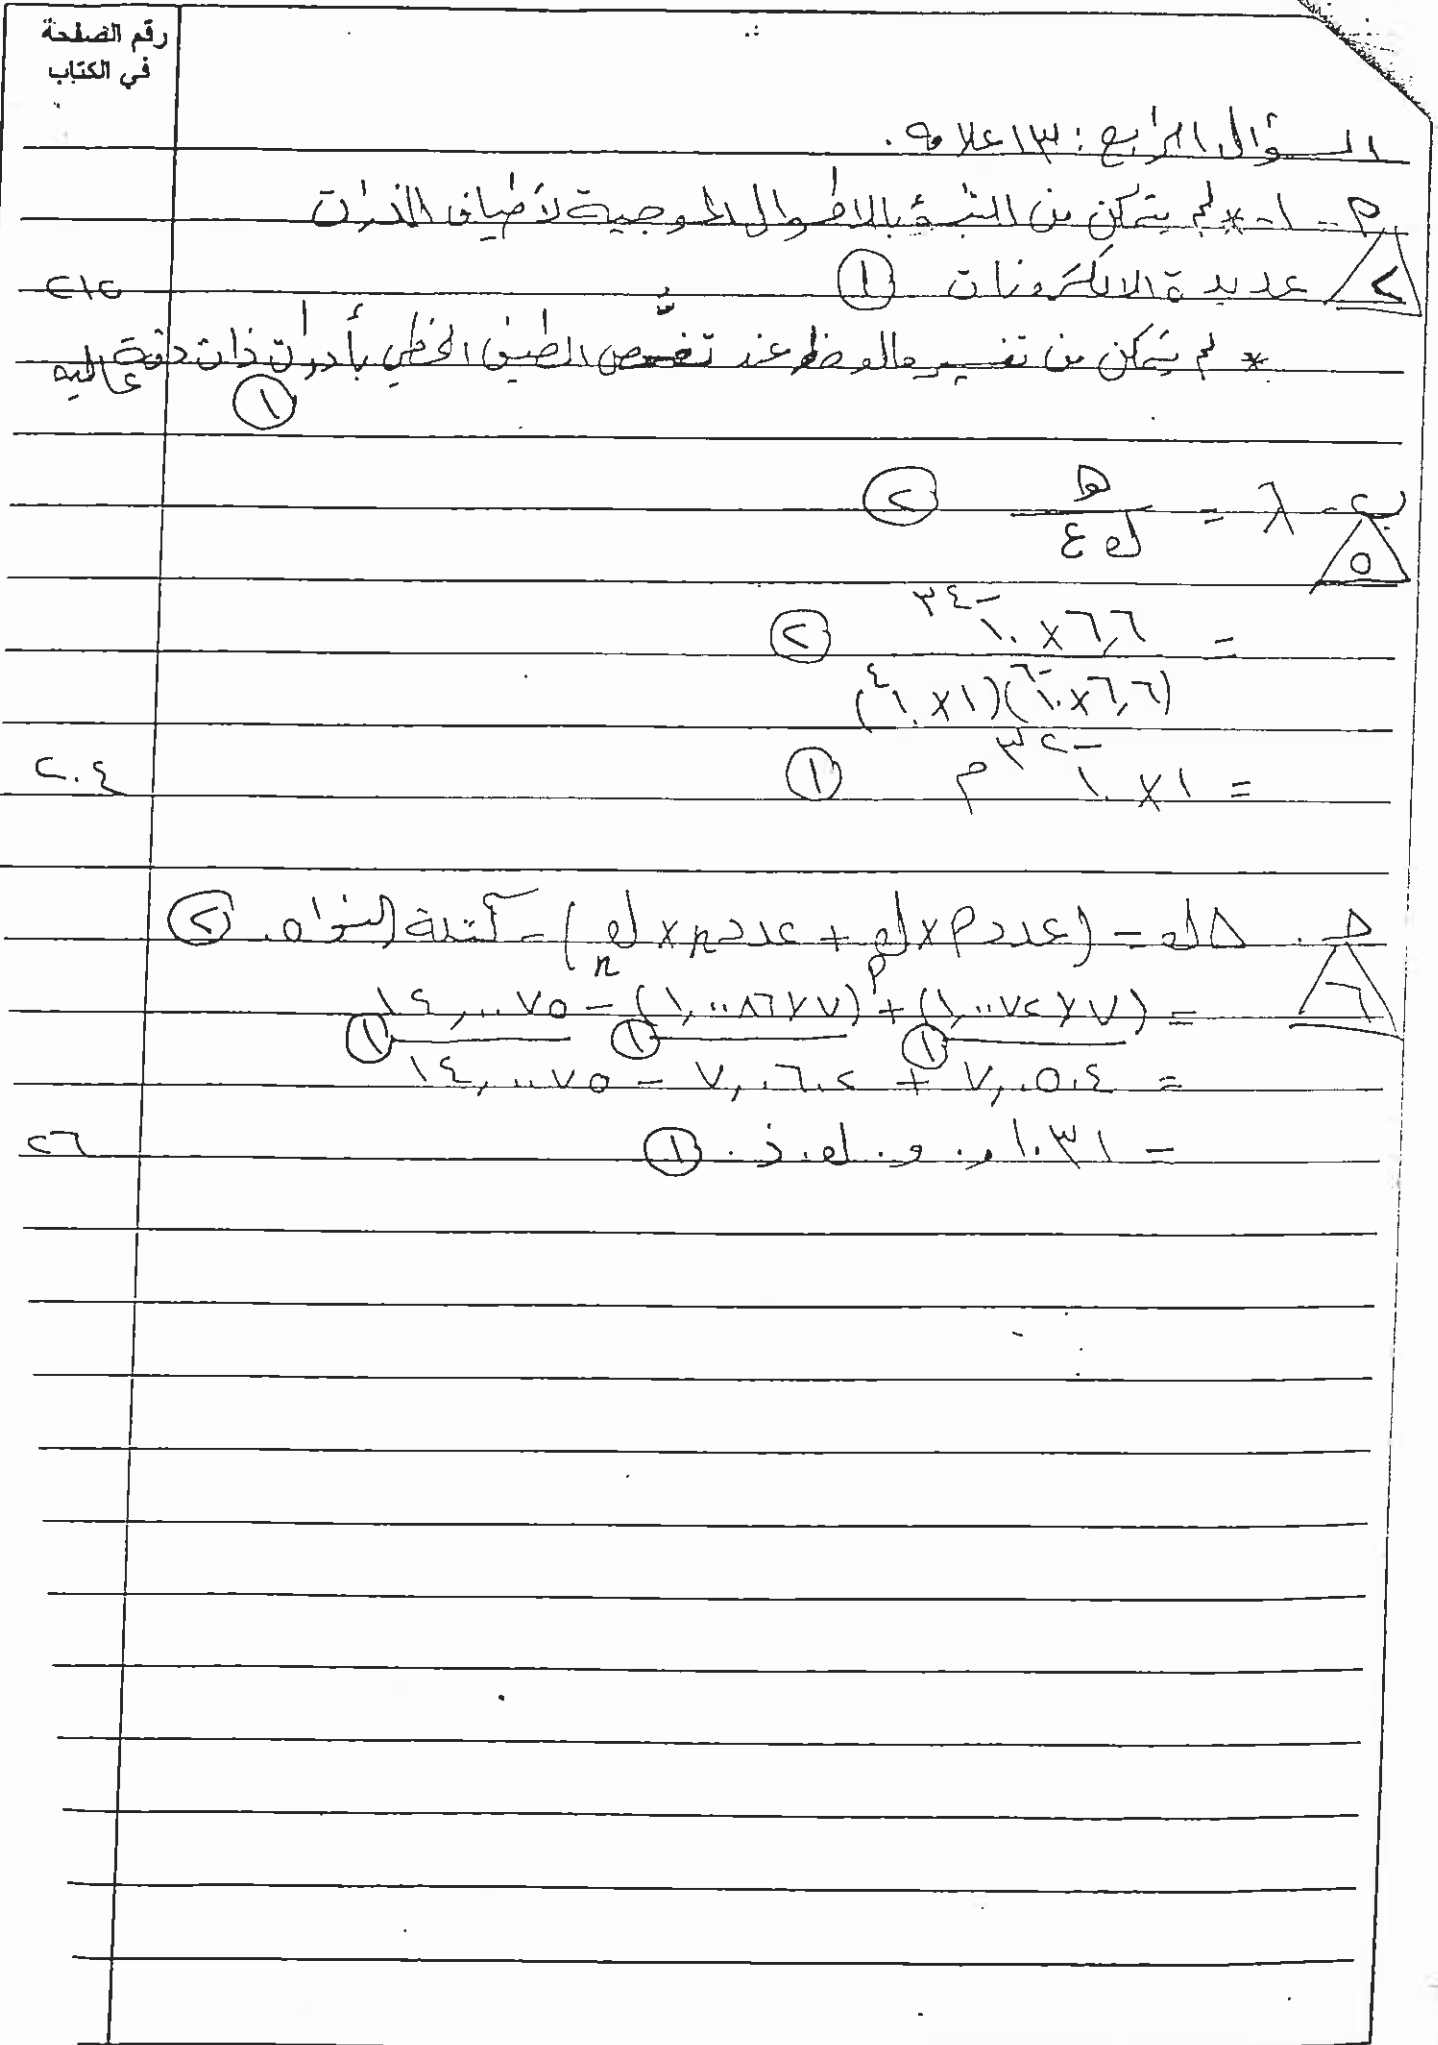 رقم الصفحة
في الكتاب
السؤال الرابع : ١٣ علامة .
٢ أ - ١ - * لم يتمكن من التنبؤ بالاطوال الموجية لأطياف الذرات
عديدة الالكترونات ① ٢١٢
* لم يتمكن من تفسير ما لوحظ عند تفحّص الطيف الخطي بأدوات ذات دقة عالية
①
٥ ب - λ = هـ / ك ع ②
= ٦,٦ × ١٠^-٣٤ / (٦,٦ × ١٠^-٦)(١ × ١٠^٤) ②
= ١ × ١٠^-٣٢ م ① ٢٠٤
٦ جـ . Δك = (عدد p × ك p + عدد n × ك n) - كتلة النواه . ②
= (٧ × ١,٠٠٧٢) + (٧ × ١,٠٠٨٦) - ١٤,٠٠٧٥
① ① ①
= ٧,٠٥٠٤ + ٧,٠٦٠٢ - ١٤,٠٠٧٥
= ٠,١٠٣١ و . ك . ذ . ① ٢٦